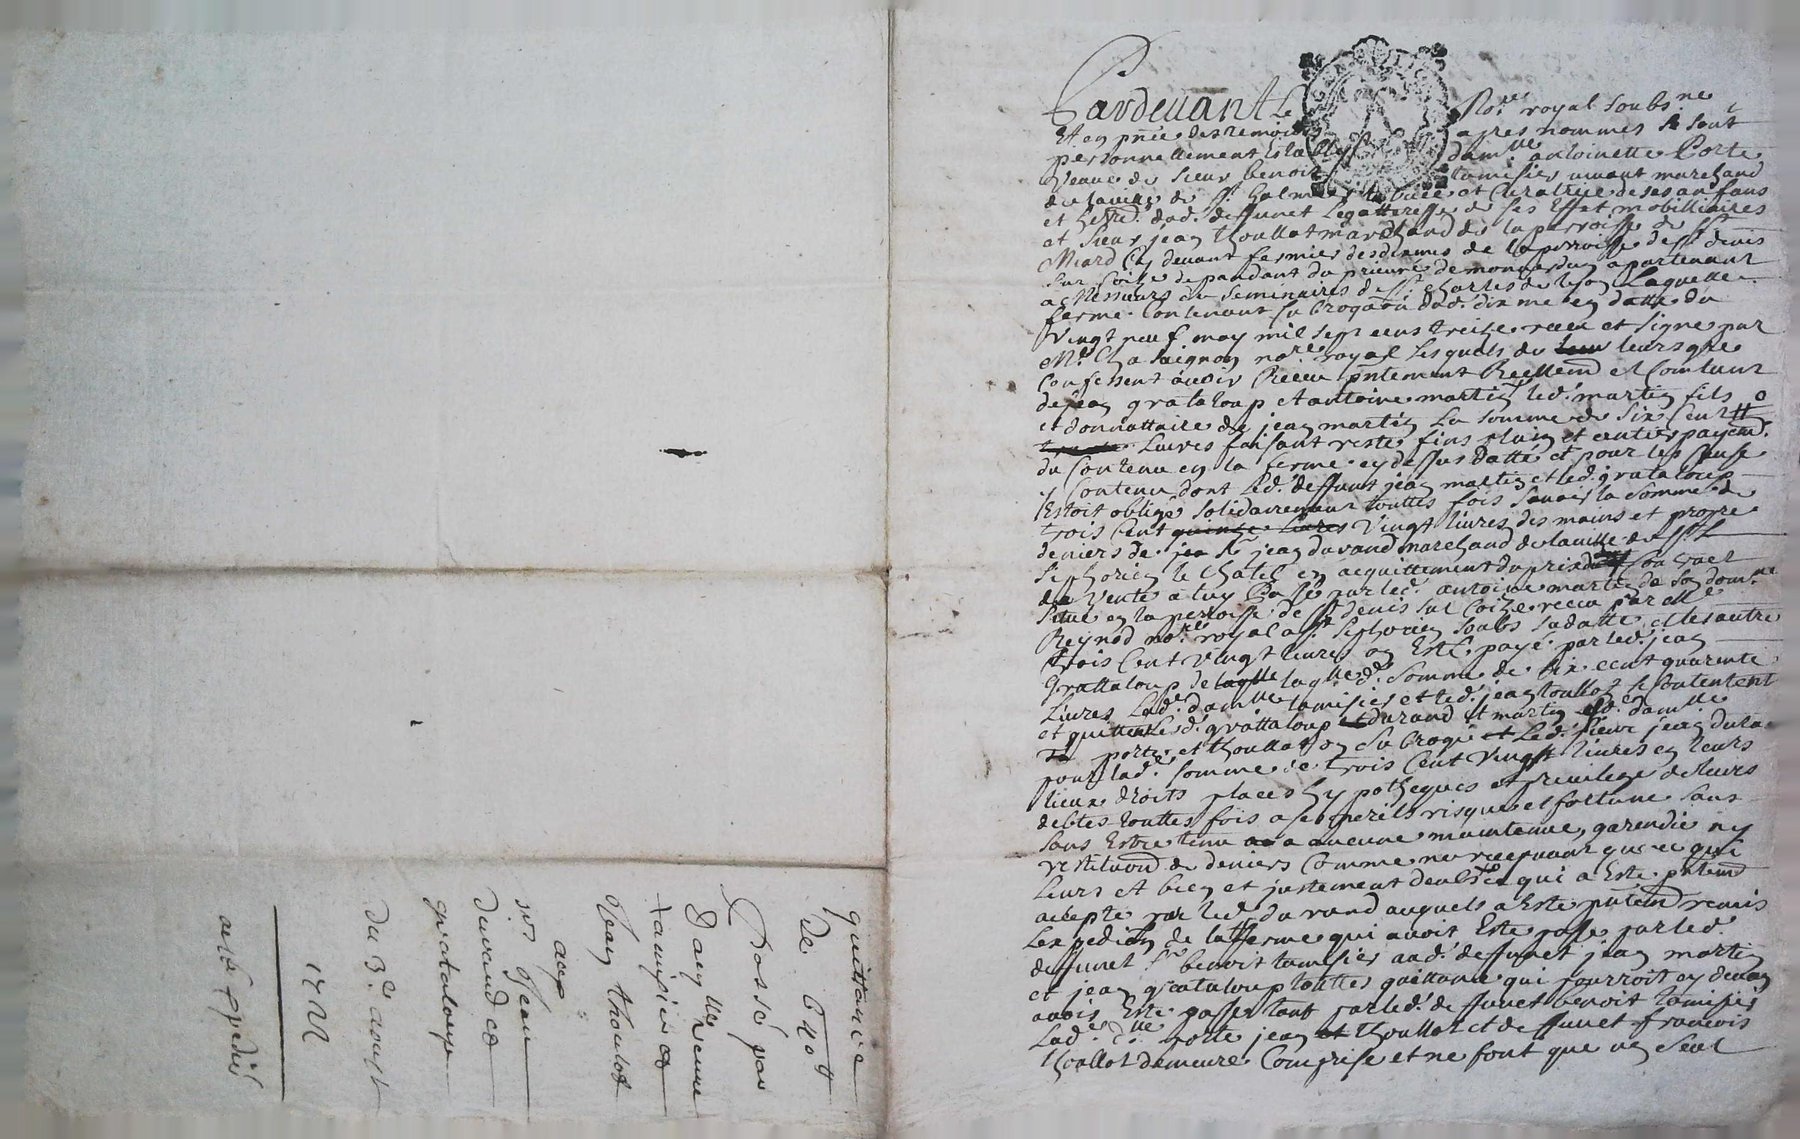 Pardevant Le No.re royal soubs.ne
Et en pñce des temoins apres nommes se sont
personnellement Establys dam.lle antoinette Porte
Veuve de sieur benoit tamisier vivant marchand
de la ville de s.t galmier tutrice et Curatrice de ses anfans
et hered. dud. deffunet Legatteresse de ses Effet mobilliaires
et sieur jean thoullot marchand de la parroisse de s.t
Meard Cy devant fermier des dixmes de la parroisse de s.t denis
sur Coize depandant du prieuré de apartenant
a Messieurs du seminaires de s.t Charles de lyon Laquelle
ferme Contenant subrogaõn dud. dixme en datte du
Vingt neuf may mil sept cens treize receu et signe par
M.e Chasaignon no.re royal Lesquels de leurs gre
Confessent avoir Receu pñtement Reellem.t et Contant
de jean grataloup et antoine martin led. martin fils
et donnattaire de jean martin La somme de six Cent
Livres faisant reste fins plain et entier payem.t
du Contenu en la ferme cy dessus datté et pour les
y Contenu dont Led. deffunt jean martin et led. grataloup
Estoit obligé solidairement touttes fois savoir la somme de
trois Cent quinze livres Vingt livres des mains et propre
deniers de s.r jean durand marchand de la ville de s.t
siphorien le Chatel en acquittement du prix du Contract
de Vente a luy Passé par led. antoine martin de son dom.ne
situé en la perroisse de s.t denis sur Coize receu par M.e
Reynod no.re royal a s.t siphorien soubs sa datte et les autre
trois Cent Vingt livres on Esté payé par led. jean
Grattaloup de laqlle laq.lle d. somme de six cent quarente
Livres Lad.e dam.lle tamisier et led. jean toullot se Contentent
et quittent Lesd. grattaloup et durand et martin dam.lle
porte et thoullot on subrogé et Led. sieur jean dura
pour lad.e somme de trois Cent Vingt livres en leurs
lieux droits places hypotheques et privilege de leurs
debtes touttes fois a ses perils risques et fortune sans
sans Estre tenu a aucune maintenue garendie ny
restitu.on de deniers Comme ne recepvant que ce qui
Leurs et bien et justement deub ce qui a Esté pñtem.t
accepté par led. durand auquels a Esté pñtem.t remis
Lexpedi.on de la ferme qui avoit Esté passe par led.
deffunet s.r benoit tamisier aud. deffunet jean martin
et jean grataloup touttes quittance qui pourroit cy devan
avoir Esté passer tant par led. deffunet benoit tamisier
Lad.e d.lle porte jean thoullot et deffunet francois
thoullot demeure Comprise et ne font que un seul
quittance
De 640 #
Passé par
Dam.lle veuve
tamisier et
Jean thoulot
acep
sr Jean
durand et
grataloup
du 3.e aoust
1722